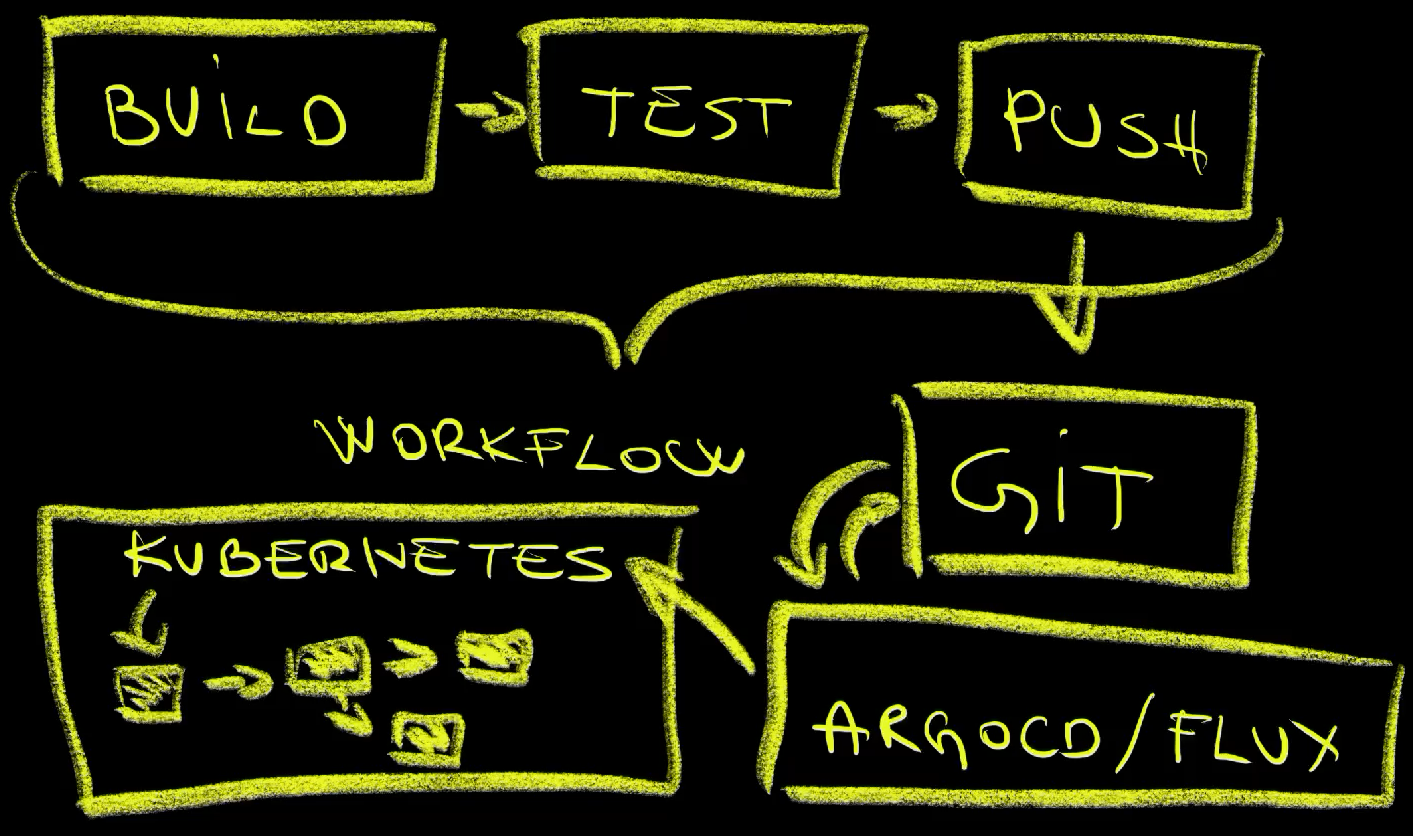 BUILD
TEST
PUSH
WORKFLOW
GIT
KUBERNETES
ARGOCD/FLUX